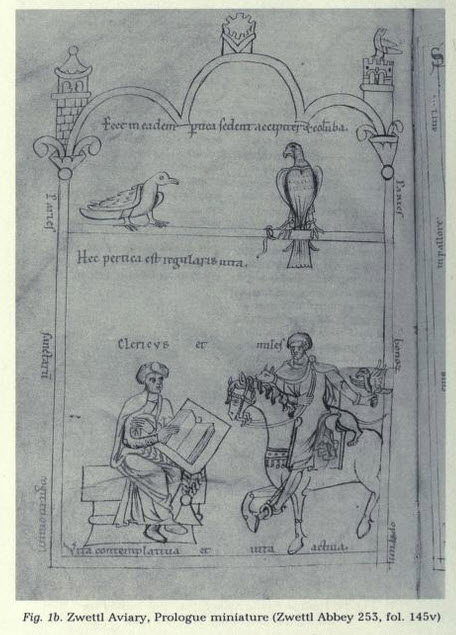 Ecce in eadem ptica sedent accipiter & colūba.
Paries
Paries
Hec pertica est regularis uita.
Clericus et miles
Vita contemplatiua et uita actiua.
Fig. 1b. Zwettl Aviary, Prologue miniature (Zwettl Abbey 253, fol. 145v)